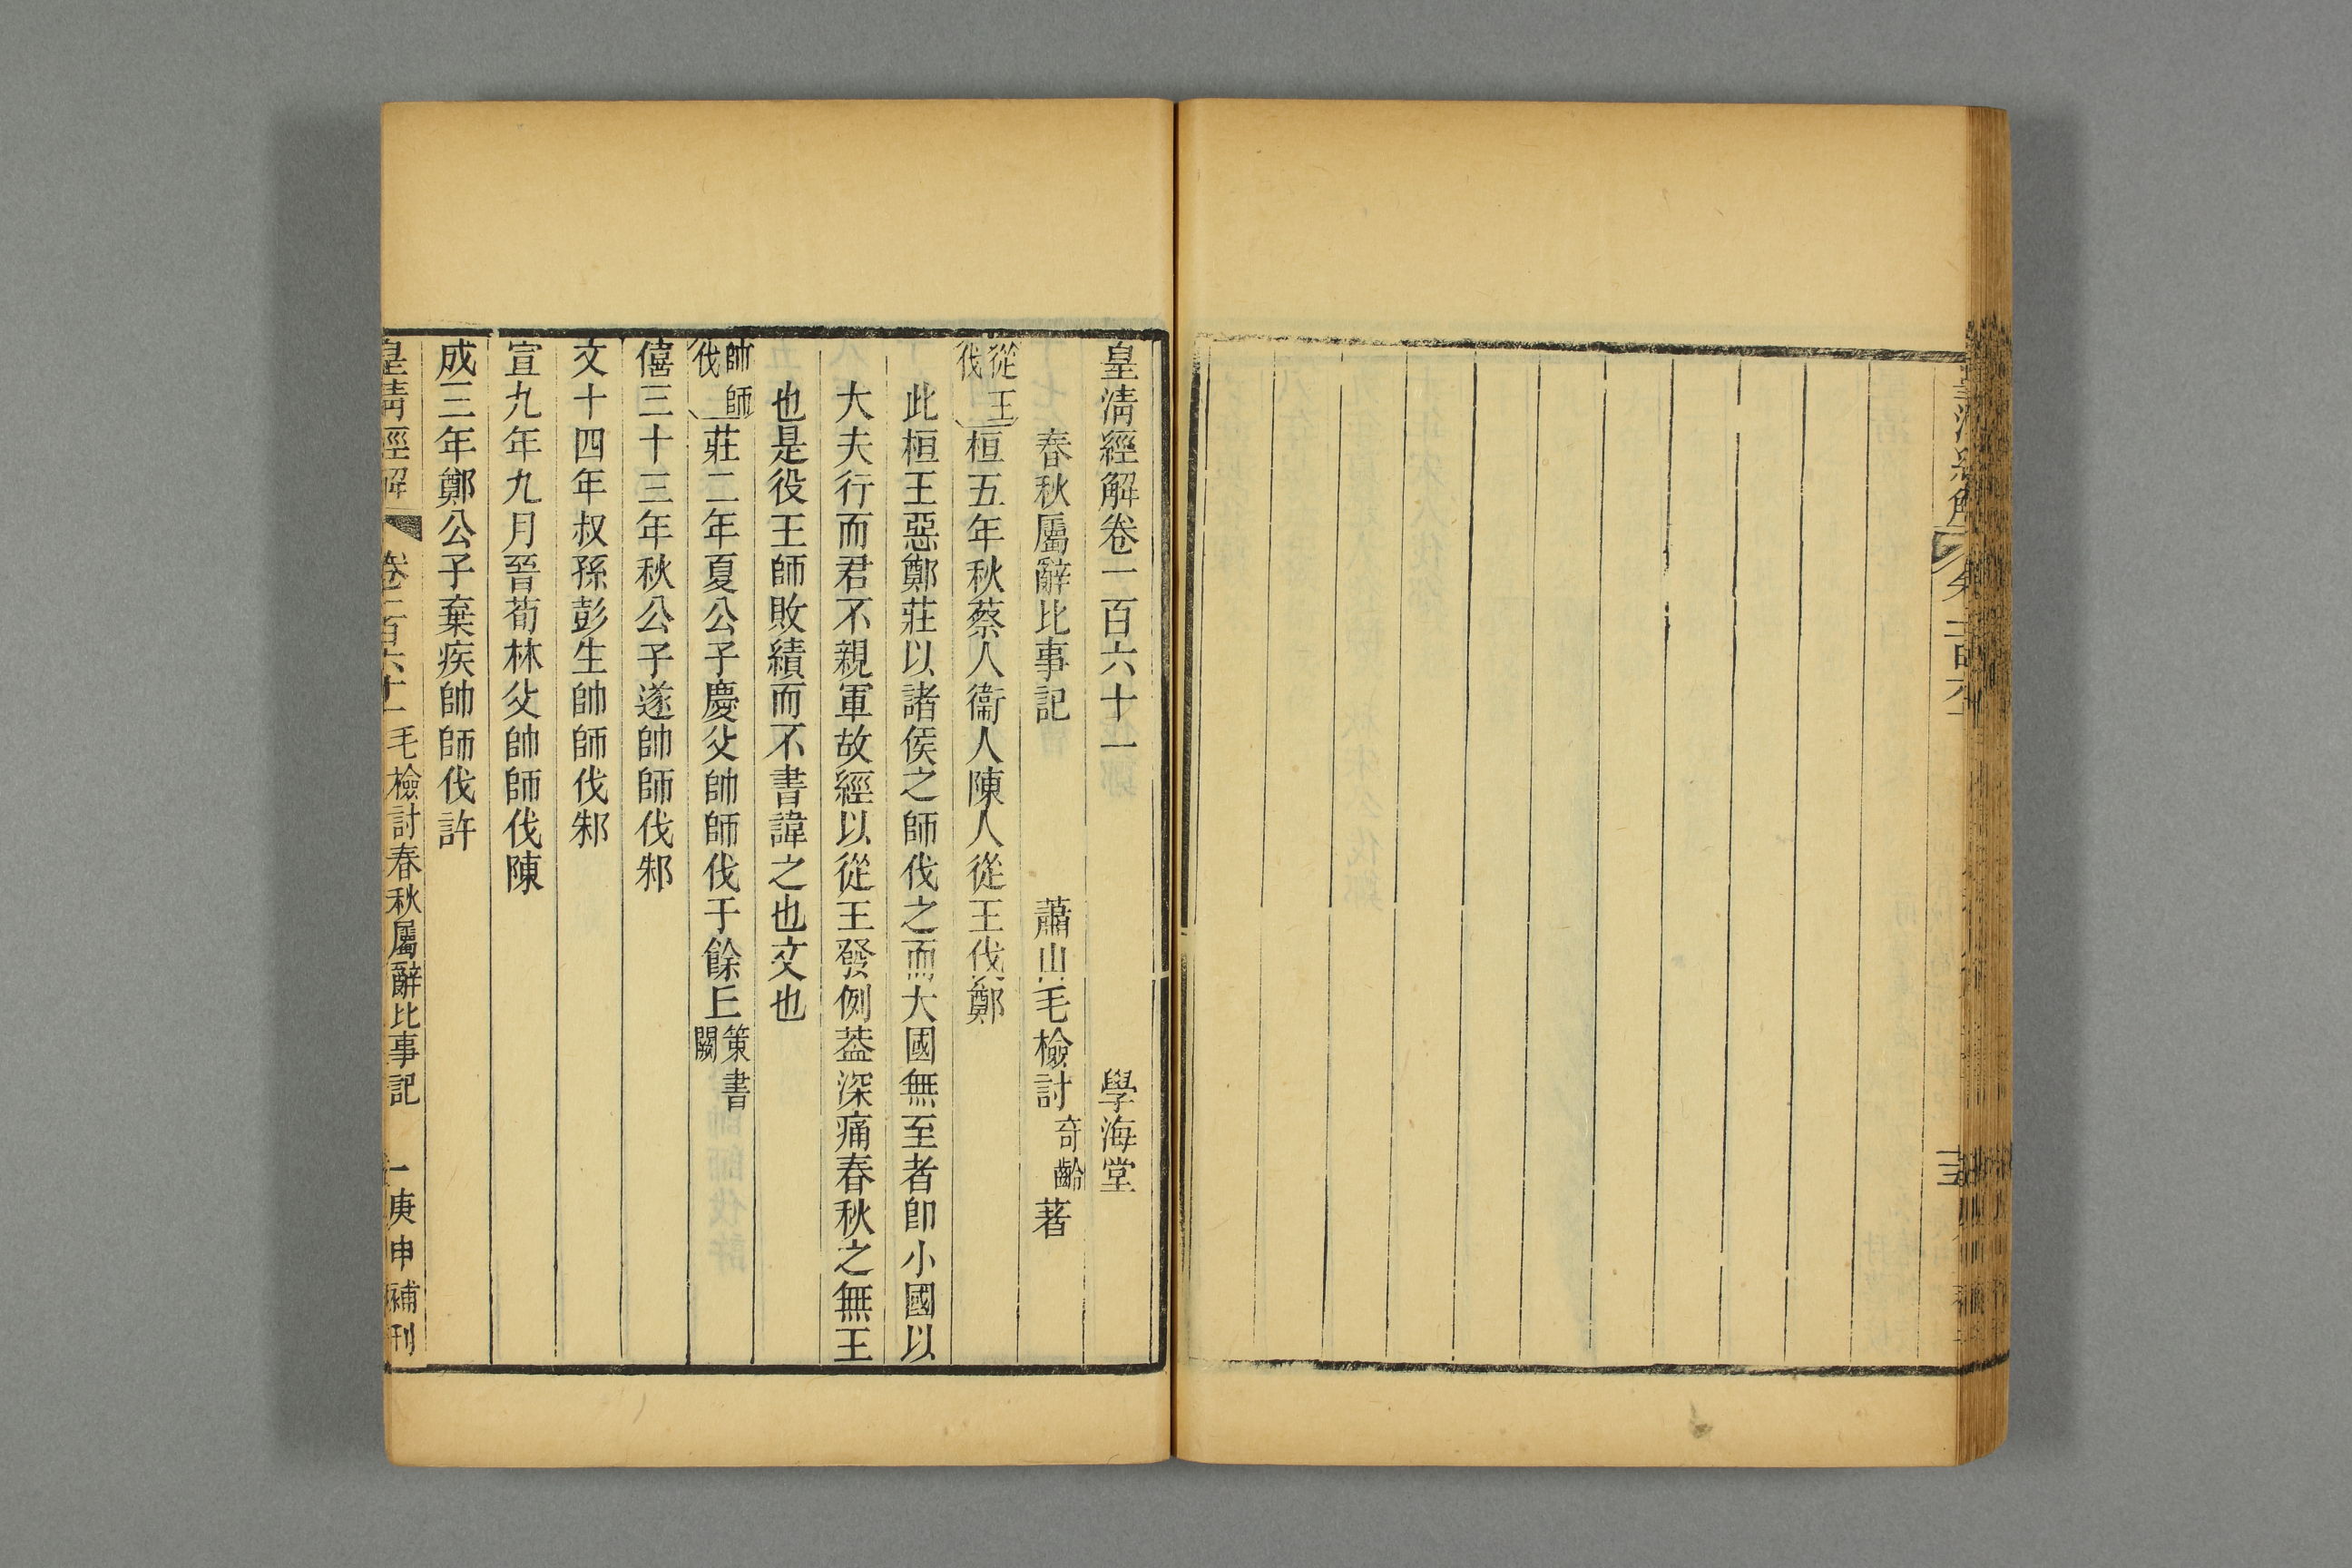 皇清經解卷一百六十一　學海堂
春秋屬辭比事記　蕭山毛檢討奇齡著
從王伐　桓五年秋蔡人衞人陳人從王伐鄭
此桓王惡鄭莊以諸侯之師伐之而大國無至者卽小國以
大夫行而君不親軍故經以從王發例葢深痛春秋之無王
也是役王師敗績而不書諱之也文也
帥師伐　莊二年夏公子慶父帥師伐于餘𠀉策書闕
僖三十三年秋公子遂帥師伐邾
文十四年叔孫彭生帥師伐邾
宣九年九月晉荀林父帥師伐陳
成三年鄭公子棄疾帥師伐許
皇清經解　卷一百六十一　毛檢討春秋屬辭比事記　一　庚申補刊